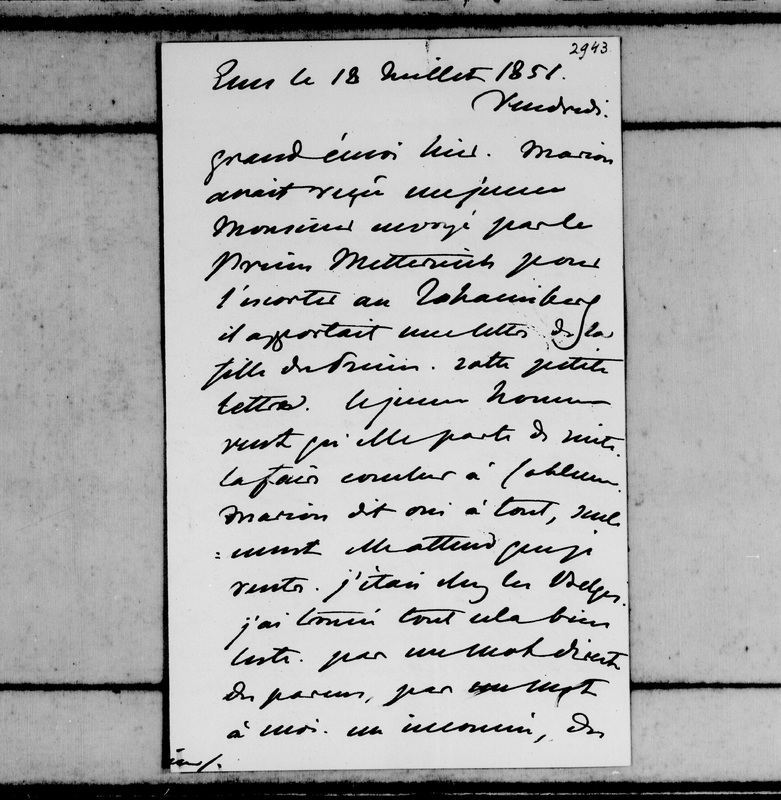 2943
Ems le 18 Juillet 1851.
Vendredi.
grand émoi hier. Marion
avait reçu un jeune
Monsieur envoyé par le
Prince Metternich pour
l'escorter au Johannisberg
il apportait une lettre de la
fille du Prince. sotte petite
lettre. le jeune homme
veut qu'elle parte de suite.
la faire coucher à Coblence.
Marion dit oui à tout, seule
=ment elle attend que je
rentre. j'étais chez les
j'ai trouvé tout cela bien
leste. pas un mot direct
des parens, pas un mot
à moi. un inconnu, des